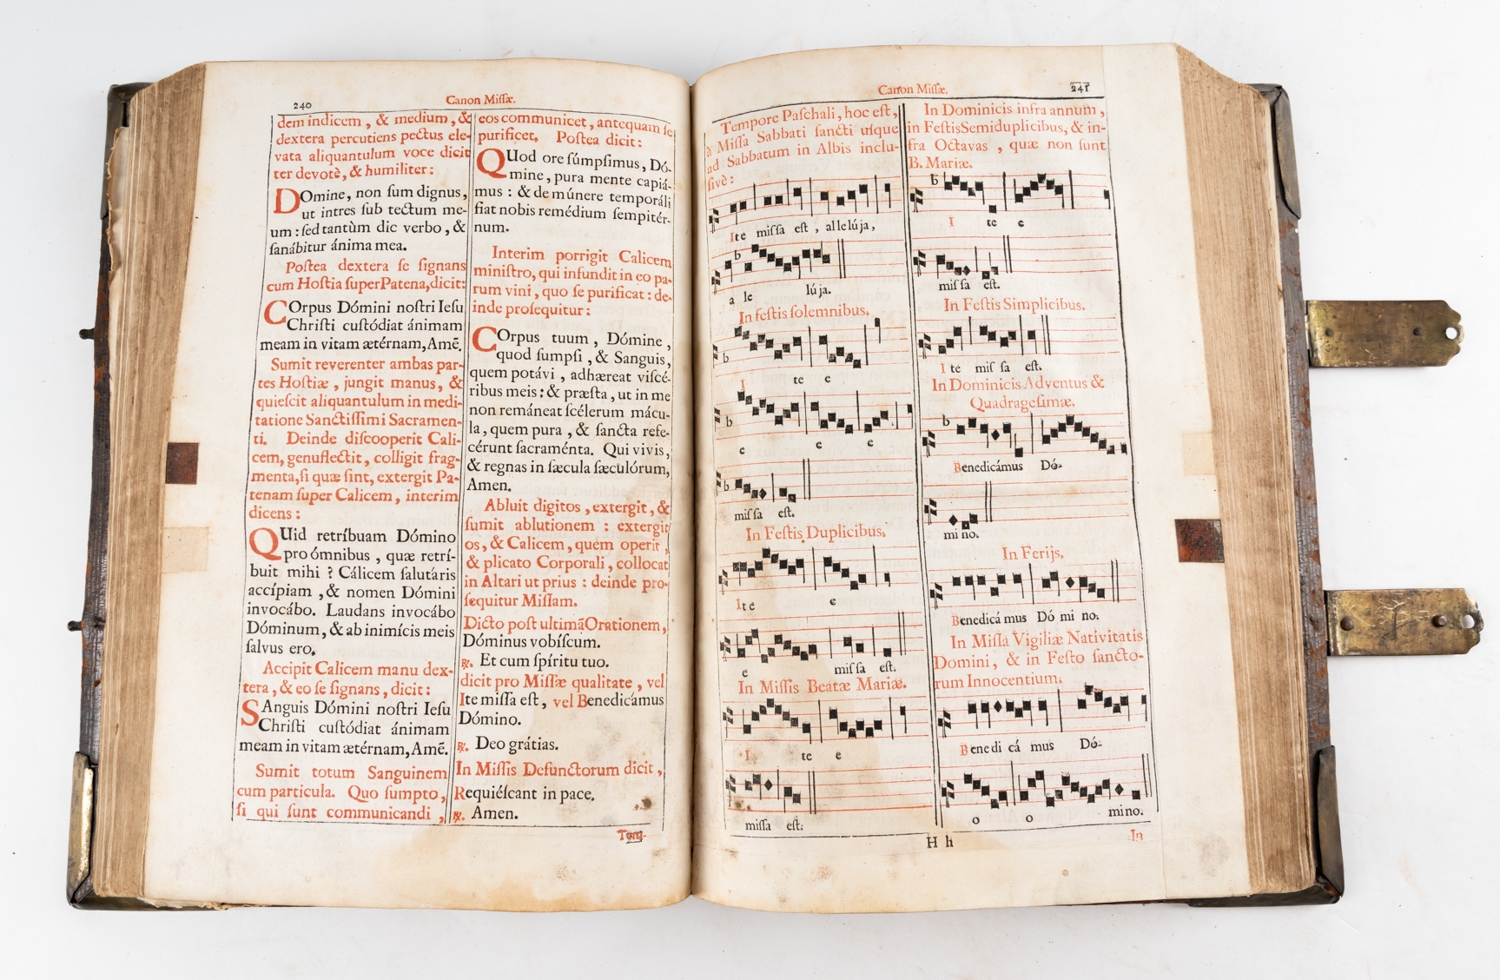 240
Canon Missæ.
dem indicem, & medium, &
dextera percutiens pectus ele-
vata aliquantulum voce dicit
ter devotè, & humiliter:
DOmine, non sum dignus,
ut intres sub tectum me-
um: sed tantùm dic verbo, &
sanábitur ánima mea.
Postea dextera se signans
cum Hostia super Patena, dicit:
COrpus Dómini nostri Iesu
Christi custódiat ánimam
meam in vitam ætérnam, Amē.
Sumit reverenter ambas par-
tes Hostiæ, jungit manus, &
quiescit aliquantulum in medi-
tatione Sanctissimi Sacramen-
ti. Deinde discooperit Cali-
cem, genuflectit, colligit frag-
menta, si quæ sint, extergit Pa-
tenam super Calicem, interim
dicens:
QUid retríbuam Dómino
pro ómnibus, quæ retrí-
buit mihi? Cálicem salutáris
accípiam, & nomen Dómini
invocábo. Laudans invocábo
Dóminum, & ab inimícis meis
salvus ero.
Accipit Calicem manu dex-
tera, & eo se signans, dicit:
SAnguis Dómini nostri Iesu
Christi custódiat ánimam
meam in vitam ætérnam, Amē.
Sumit totum Sanguinem
cum particula. Quo sumpto,
si qui sunt communicandi,
eos communicet, antequam se
purificet. Postea dicit:
QUod ore súmpsimus, Dó-
mine, pura mente capiá-
mus: & de múnere temporáli
fiat nobis remédium sempitér-
num.
Interim porrigit Calicem
ministro, qui infundit in eo pa-
rum vini, quo se purificat: de-
inde prosequitur:
COrpus tuum, Dómine,
quod sumpsi, & Sanguis,
quem potávi, adhæreat viscé-
ribus meis: & præsta, ut in me
non remáneat scélerum mácu-
la, quem pura, & sancta refe-
cérunt sacraménta. Qui vivis,
& regnas in sæcula sæculórum,
Amen.
Abluit digitos, extergit, &
sumit ablutionem: extergit
os, & Calicem, quem operit,
& plicato Corporali, collocat
in Altari ut prius: deinde pro-
sequitur Missam.
Dicto post ultimā Orationem,
Dóminus vobíscum.
℟. Et cum spíritu tuo.
dicit pro Missæ qualitate, vel
Ite missa est, vel Benedicámus
Dómino.
℟. Deo grátias.
In Missis Defunctorum dicit,
Requiéscant in pace.
℟. Amen.
Tem-
Canon Missæ.
241
Tempore Paschali, hoc est,
à Missa Sabbati sancti usque
ad Sabbatum in Albis inclu-
sivè:
Ite missa est, allelúja,
a le lúja.
In festis solemnibus.
I te e
e e e
missa est.
In Festis Duplicibus.
Ite e
e missa est.
In Missis Beatæ Mariæ.
I te e
missa est.
H h
In Dominicis infra annum,
in Festis Semiduplicibus, & in-
fra Octavas, quæ non sunt
B. Mariæ.
I te e
missa est.
In Festis Simplicibus.
I te mis sa est.
In Dominicis Adventus &
Quadragesimæ.
Benedicámus Dó-
mi no.
In Ferijs.
Benedicá mus Dó mi no.
In Missa Vigiliæ Nativitatis
Domini, & in Festo sancto-
rum Innocentium.
Benedi cá mus Dó-
o o mino.
In